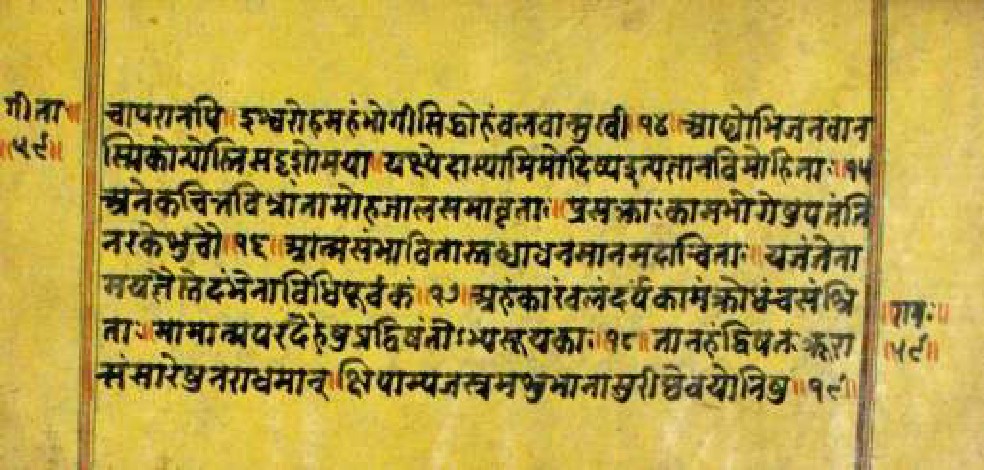 गीता॥
॥५९॥
चापरानपि॥ ईश्वरोहमहंभोगीसिद्धोहंबलवान्सुखी॥१४॥आढ्योभिजनवान
स्मिकोन्योस्तिसदृशोमया॥यक्ष्येदास्यामिमोदिष्यइत्यज्ञानविमोहिताः॥१५
अनेकचित्तविभ्रांतामोहजालसमावृताः॥प्रसक्ताःकामभोगेषुपतंति
नरकेशुचौ॥१६॥आत्मसंभावितास्तब्धाधनमानमदान्विताः॥यजंतेना
मयज्ञैस्तेदंभेनाविधिपूर्वकं॥१७॥अहंकारंबलंदर्पंकामंक्रोधंचसंश्रि
ताः॥मामात्मपरदेहेषुप्रद्विषंतोभ्यसूयकाः॥१८॥तानहंद्विषतःक्रूरा
संसारेषुनराधमान्॥क्षिपाम्यजस्रमशुभानासुरीष्वेवयोनिषु॥१९॥
॥रामः॥
॥५९॥